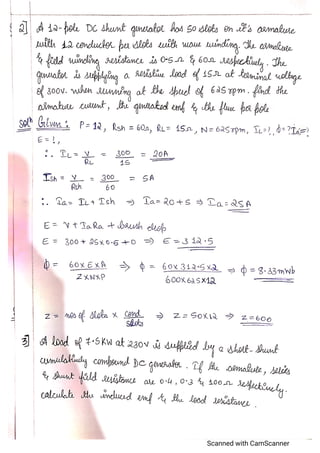 2] A 12-pole DC shunt generator has 50 slots on it's armature
with 12 conductor per slots with wave winding. The armature
& field winding resistance is 0.5Ω & 60Ω respectively. The
generator is supplying a resistive load of 15Ω at terminal voltage
of 300V. when running at the speed of 625rpm. find the
armature current, the generated emf & the flux per pole
solⁿ Given: P=12, Rsh = 60Ω, RL = 15Ω, N=625rpm, IL=?, Φ=? Ia=?
E=?,
∴ IL = V/RL = 300/15 = 20A
Ish = V/Rsh = 300/60 = 5A
∴ Ia = IL + Ish ⇒ Ia = 20+5 ⇒ Ia = 25A
E = V + IaRa + brush drop
E = 300 + 25x0.5 + 0 ⇒ E = 312.5
Φ = 60xExA/ZxNxP ⇒ Φ = 60x312.5x2/600x625x12 ⇒ Φ = 8.33mWb
Z = nos of slots x cond/slots ⇒ Z = 50x12 ⇒ Z=600
3] A load of 7.5KW at 230V is supplied by a short-shunt
cumulatively compound DC generator. If the armature, series
& shunt field resistance are 0.4, 0.3 & 100Ω respectively.
calculate the induced emf & the load resistance.
Scanned with CamScanner